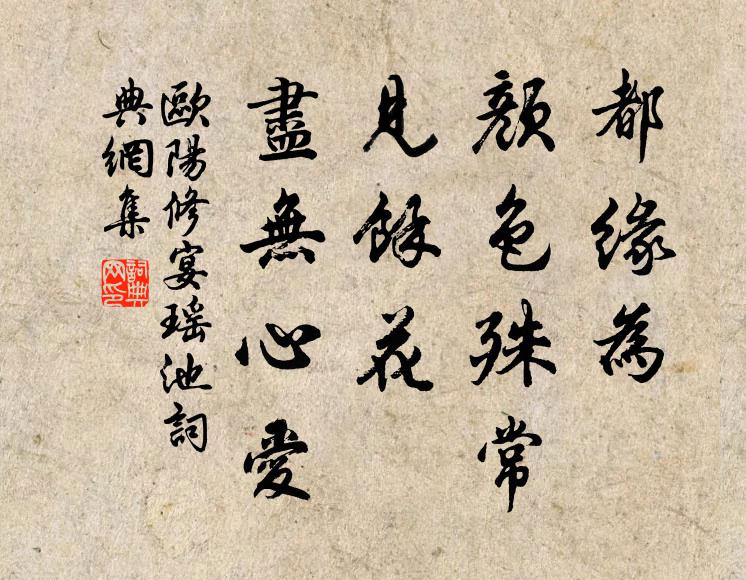 都緣為
顏色殊常
見餘花
盡無心愛
歐陽修宴瑤池詞
典網集
詞典
网印